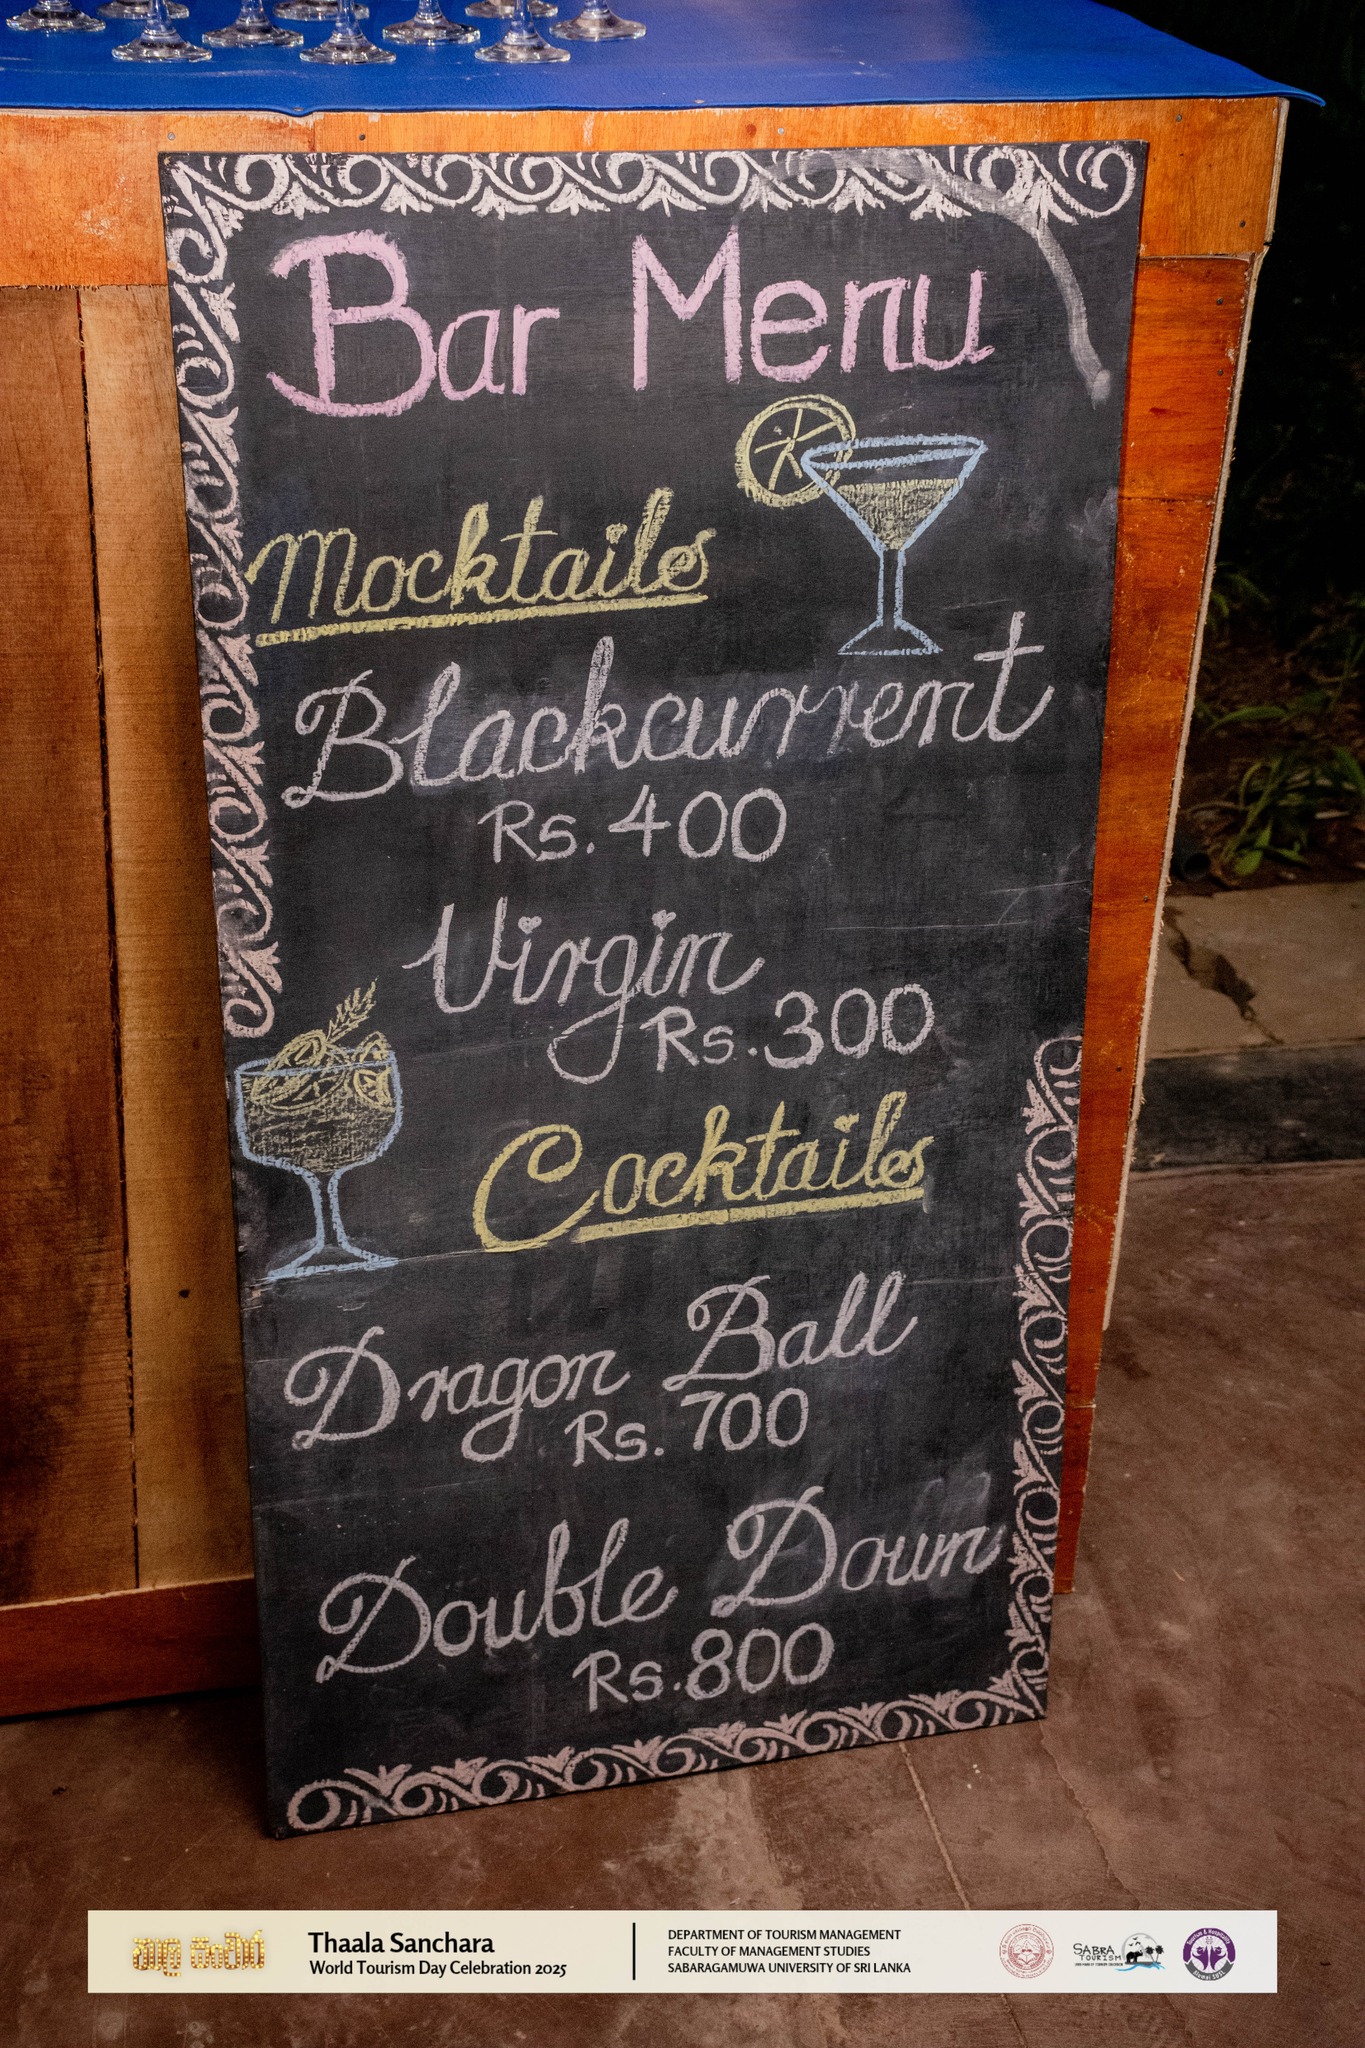 Bar Menu
Mocktails
Blackcurrent
Rs. 400
Virgin
Rs. 300
Cocktails
Dragon Ball
Rs. 700
Double Down
Rs. 800
තාල සංචාර
Thaala Sanchara
World Tourism Day Celebration 2025
DEPARTMENT OF TOURISM MANAGEMENT
FACULTY OF MANAGEMENT STUDIES
SABARAGAMUWA UNIVERSITY OF SRI LANKA
SABRA
TOURISM
Tourism & Hospitality
Alumni SUSL